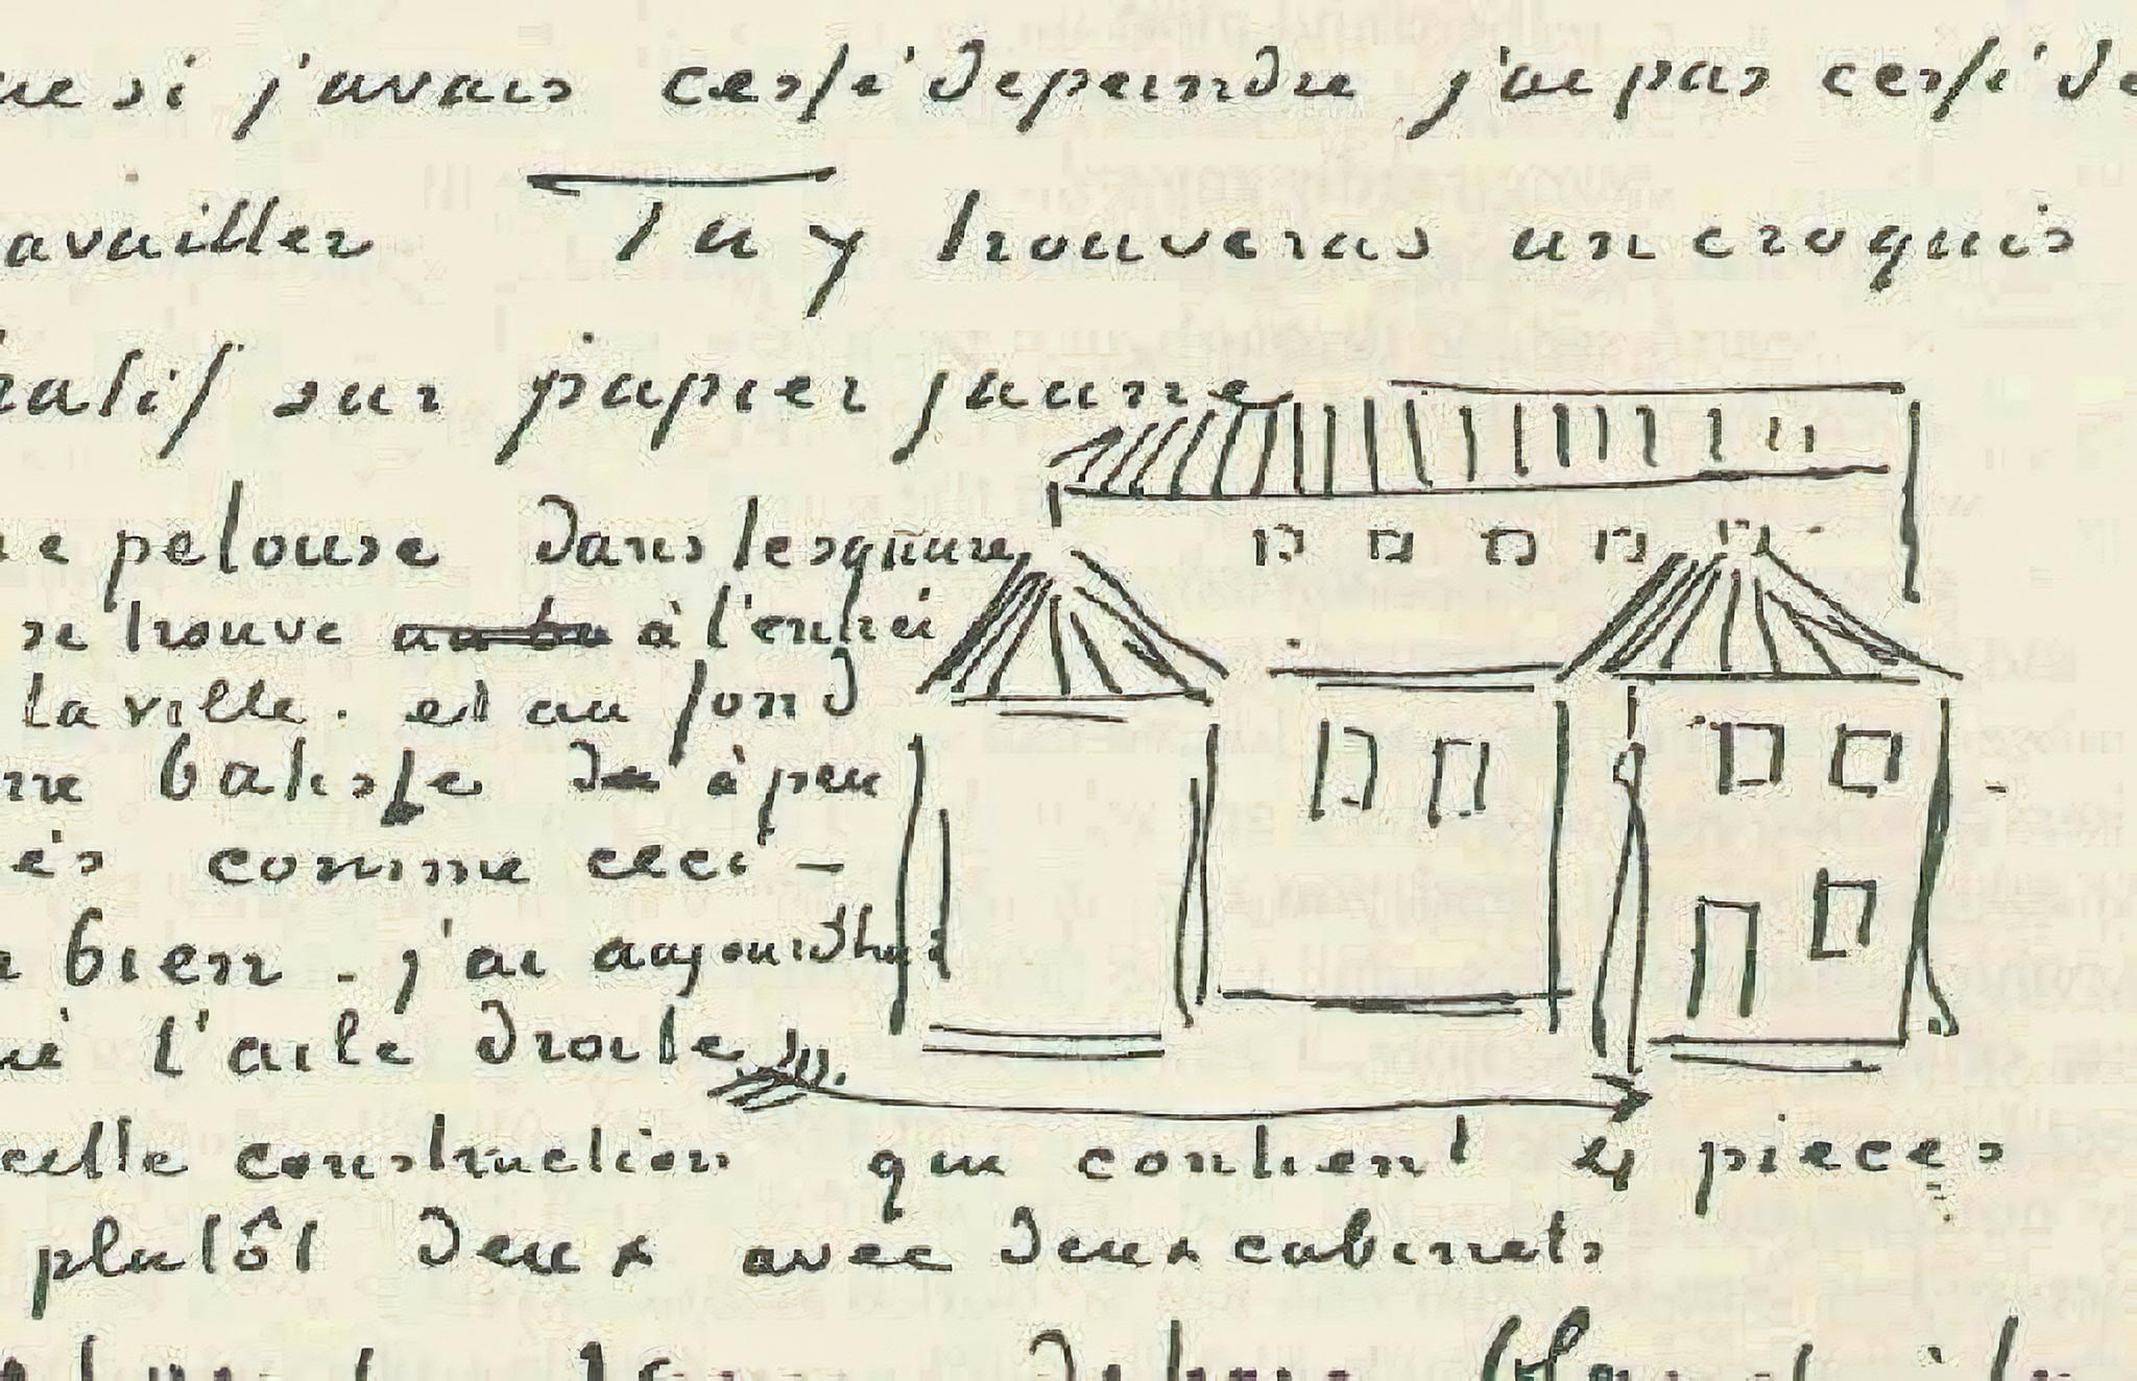 si j'avais cessé de peindre j'ai pas cessé de
availler Tu y trouveras un croquis
hatif sur papier jaune
pelouse dans le square
se trouve à l'entrée
la ville. et au fond
batisse de à peu
ès comme ceci –
bien. j'ai aujourdhui
l'aile droite
cette construction qui contient 4 pieces
plutôt deux avec deux cabinets